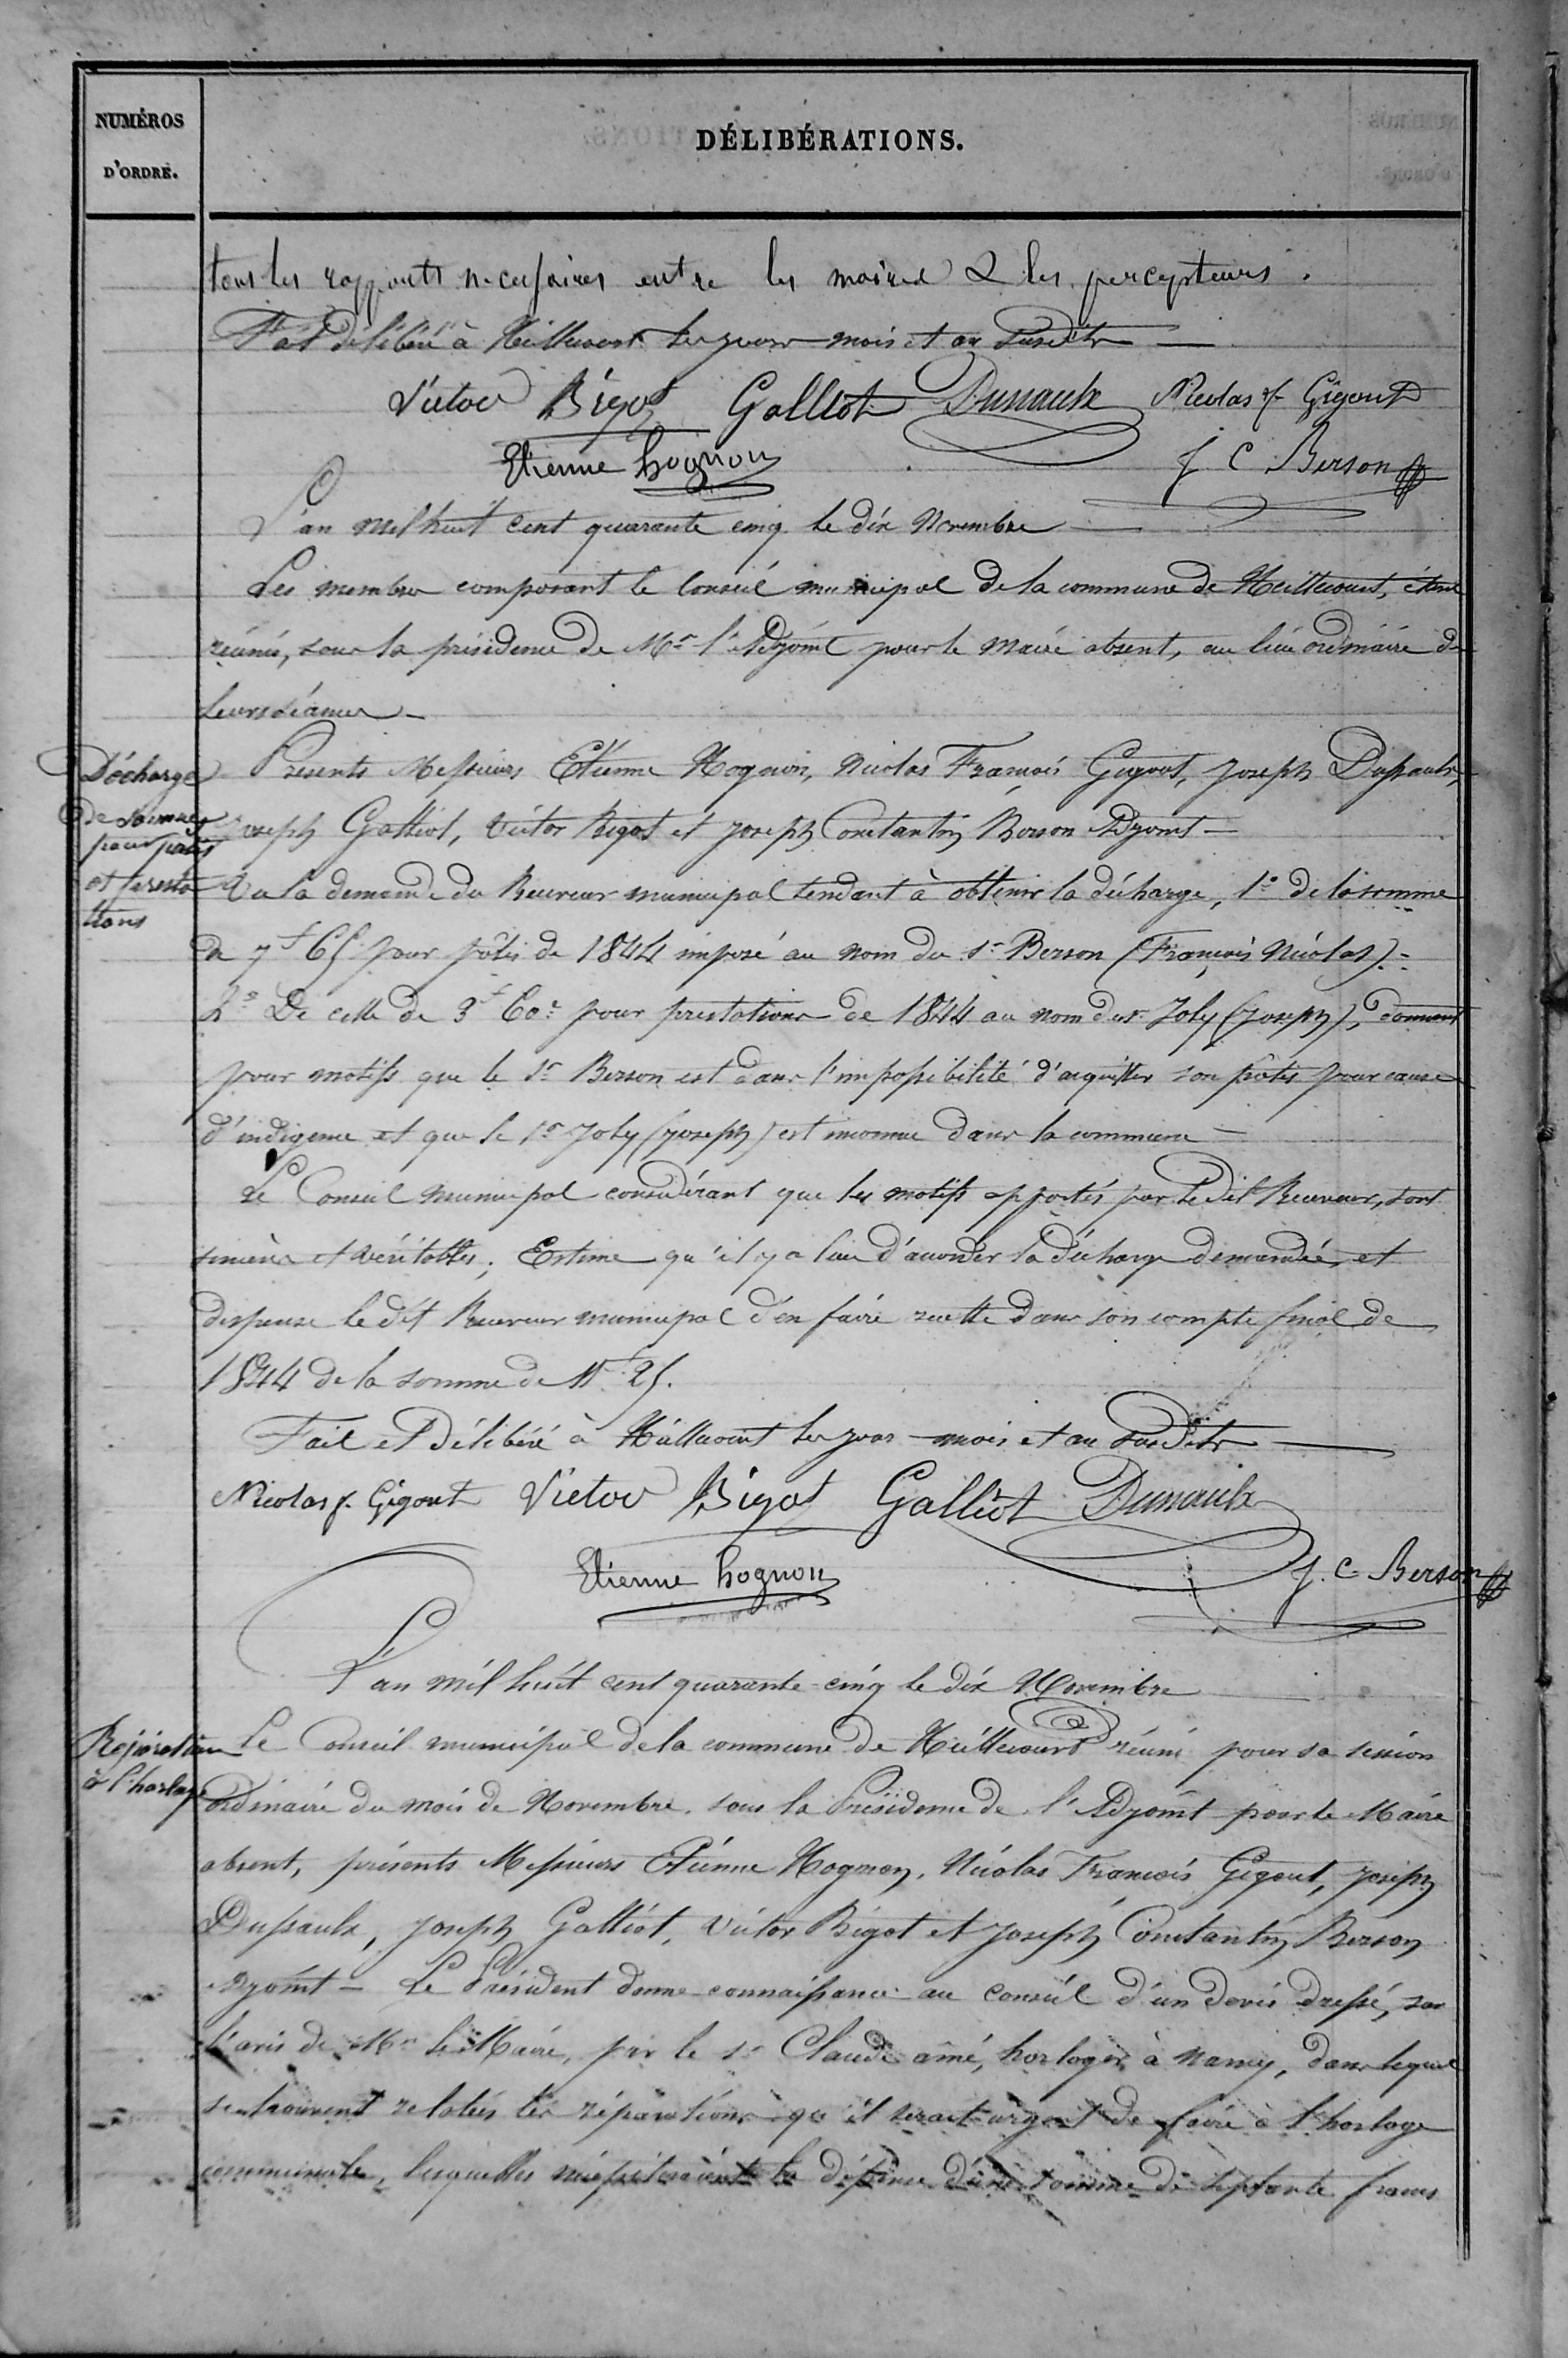 NUMÉROS
D'ORDRE.
DÉLIBÉRATIONS.
tous les rapports necessaires entre les maires & les percepteurs.
Fait délibéré à Heillecourt les jour mois et an susdits
Victor Bigot Galliot Dussaulx Nicolas f. Gigout
Etienne hognon J C Berson
L'an mil huit cent quarante cinq le dix Novembre
Les membres composant le Conseil municipal de la commune de Heillecourt, étant
réunis, sous la présidence de Mr l'Adjoint pour le Maire absent, au lieu ordinaire de
leurs séances
Décharge
de sommes
pour pâtis
et presta
tions
Présents Messieurs Etienne Hognon, Nicolas François Gigout, Joseph Dussaulx,
Joseph Galliot, Victor Bigot et Joseph Constantin Berson Adjoint
Vu la demande du Receveur municipal tendant à obtenir la décharge, 1° de la somme
de 7f 65 pour pâtis de 1844 imposé au nom du Sr Berson (François Nicolas).
2° De celle de 3f 60c pour prestations de 1844 au nom du Sr Joly (Joseph), donnant
pour motifs que le Sr Berson est dans l'impossibilité d'acquitter son pâtis pour cause
d'indigence et que le Sr Joly (Joseph) est inconnu dans la commune
Le Conseil municipal considérant que les motifs apportés par le dit Receveur, sont
sincères et véritables; Estime qu'il y a lieu d'accorder la décharge demandée et
dispense le dit Receveur municipal d'en faire recette dans son compte final de
1844 de la somme de 11f 25.
Fait et Délibéré à Heillecourt les jour mois et an susdits
Nicolas f. Gigout Victor Bigot Galliot Dussaulx
Etienne hognon J. C Berson
L'an mil huit cent quarante-cinq le dix Novembre
Réparation
à l'horloge
Le Conseil municipal de la commune de Heillecourt réuni pour sa session
ordinaire du mois de Novembre, sous la Présidence de l'Adjoint pour le Maire
absent, présents Messieurs Etienne Hognon, Nicolas François Gigout, Joseph
Dussaulx, Joseph Galliot, Victor Bigot et Joseph Constantin Berson
Adjoint - Le Président donne connaissance au conseil d'un devis dressé, sur
l'avis de Mr le Maire, par le Sr Claude aîné, horloger à Nancy, dans lequel
se trouvent relatés les réparations qu'il serait urgent de faire à l'horloge
communale, lesquelles nécessiteraient la dépense d'une somme de septante francs